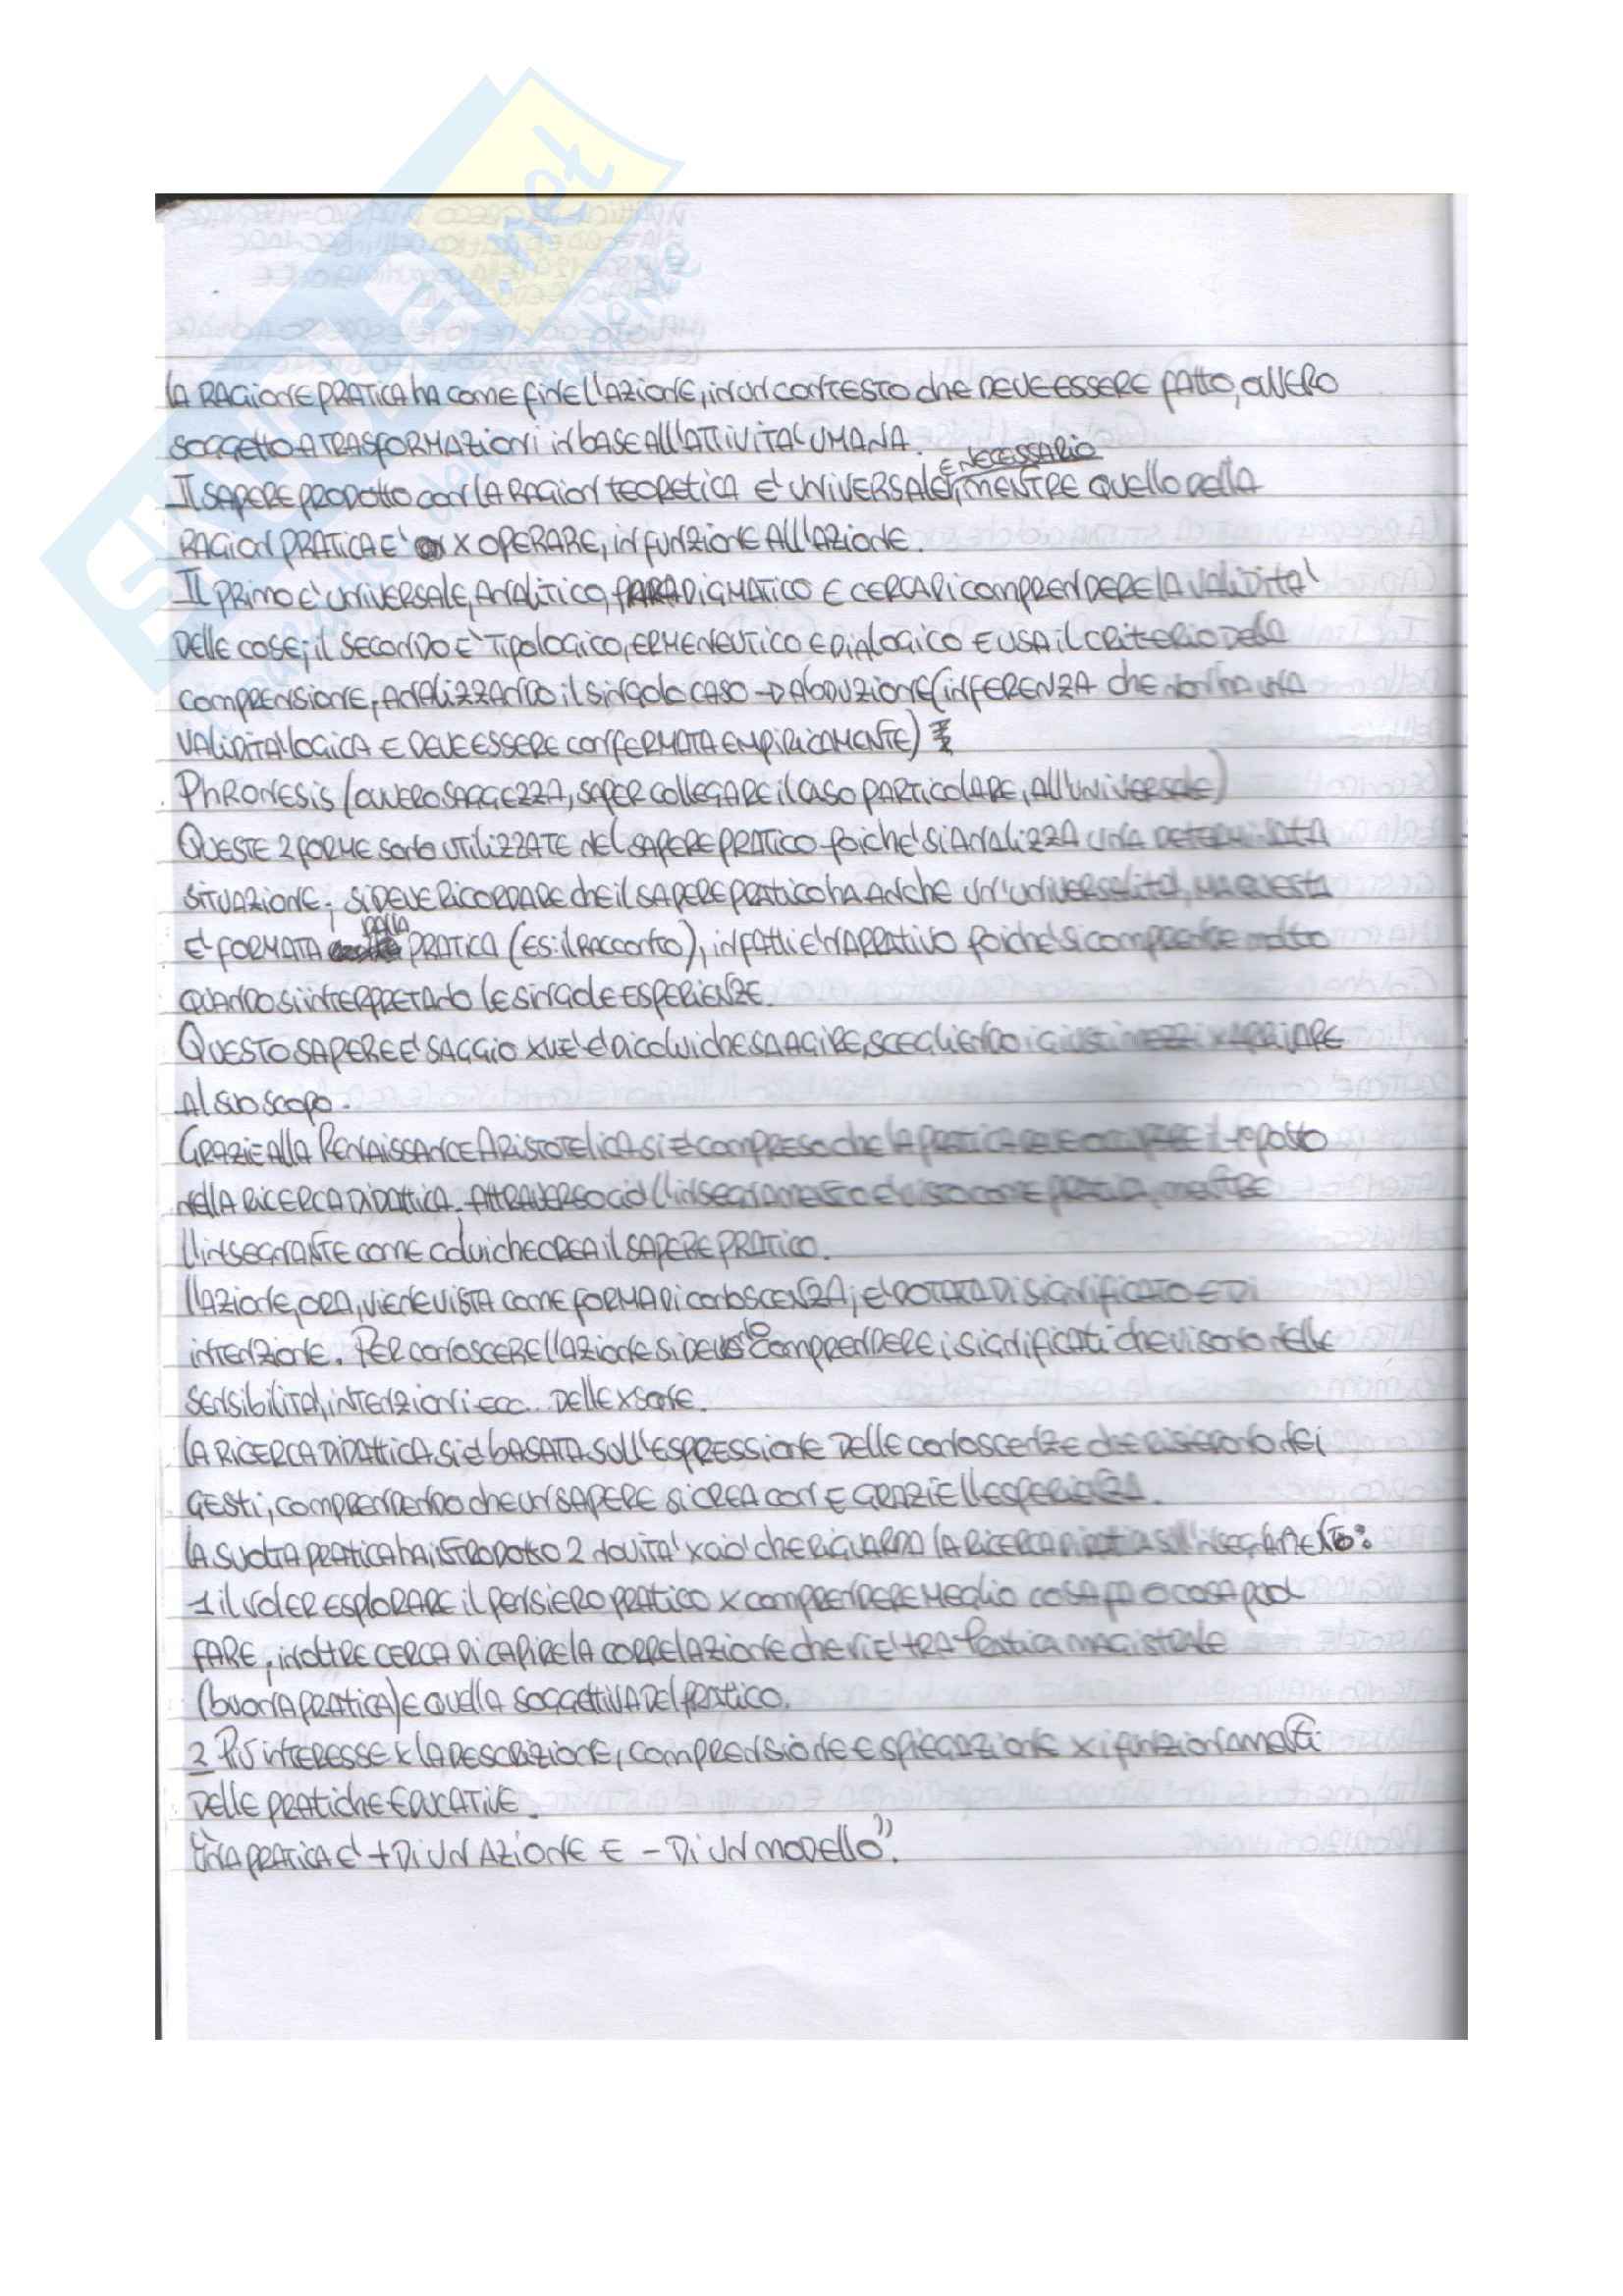 SKUOLA.net
LA RAGIONE PRATICA HA COME FINE L'AZIONE, IN UN CONTESTO CHE DEVE ESSERE FATTO, OVVERO
SOGGETTO A TRASFORMAZIONI IN BASE ALL'ATTIVITA' UMANA.
E NECESSARIO
IL SAPERE PRODOTTO CON LA RAGION TEORETICA E' UNIVERSALE, MENTRE QUELLO DELLA
RAGION PRATICA E' X OPERARE, IN FUNZIONE ALL'AZIONE.
IL PRIMO E' UNIVERSALE, ANALITICO, PARADIGMATICO E CERCA DI COMPRENDERE LA VALIDITA'
DELLE COSE; IL SECONDO E' TIPOLOGICO, ERMENEUTICO E DIALOGICO E USA IL CRITERIO DELLA
COMPRENSIONE, ANALIZZANDO IL SINGOLO CASO → ABDUZIONE (INFERENZA CHE NON HA UNA
VALIDITA' LOGICA E DEVE ESSERE CONFERMATA EMPIRICAMENTE)
PHRONESIS (OVVERO SAGGEZZA, SAPER COLLEGARE IL CASO PARTICOLARE, ALL'UNIVERSALE)
QUESTE 2 FORME SONO UTILIZZATE NEL SAPERE PRATICO POICHE' SI ANALIZZA UNA DETERMINATA
SITUAZIONE; SI DEVE RICORDARE CHE IL SAPERE PRATICO HA ANCHE UN'UNIVERSALITA', MA QUESTA
E' FORMATA DALLA PRATICA (ES: IL RACCONTO), INFATTI E' NARRATIVO POICHE' SI COMPRENDE MOLTO
QUANDO SI INTERPRETANO LE SINGOLE ESPERIENZE.
QUESTO SAPERE E' SAGGIO XKE' E' DI COLUI CHE SA AGIRE, SCEGLIENDO I GIUSTI MEZZI X ARRIVARE
AL SUO SCOPO.
GRAZIE ALLA RENAISSANCE ARISTOTELICA SI E' COMPRESO CHE LA PRATICA DEVE OCCUPARE IL 1° POSTO
NELLA RICERCA DIDATTICA. ATTRAVERSO CIO' L'INSEGNAMENTO E' VISTO COME PRATICA, MENTRE
L'INSEGNANTE COME COLUI CHE CREA IL SAPERE PRATICO.
L'AZIONE, ORA, VIENE VISTA COME FORMA DI CONOSCENZA; E' DOTATA DI SIGNIFICATO E DI
INTENZIONE. PER CONOSCERE L'AZIONE SI DEVONO COMPRENDERE I SIGNIFICATI CHE VI SONO NELLE
SENSIBILITA', INTENZIONI ECC... DELLE XSONE.
LA RICERCA DIDATTICA SI E' BASATA SULL'ESPRESSIONE DELLE CONOSCENZE CHE RISIEDONO NEI
GESTI, COMPRENDENDO CHE UN SAPERE SI CREA CON E GRAZIE L'ESPERIENZA.
LA SVOLTA PRATICA HA INTRODOTTO 2 NOVITA' X CIO' CHE RIGUARDA LA RICERCA SULL'INSEGNAMENTO:
1 IL VOLER ESPLORARE IL PENSIERO PRATICO X COMPRENDERE MEGLIO COSA FA O COSA PUO'
FARE, INOLTRE CERCA DI CAPIRE LA CORRELAZIONE CHE VI E' TRA PRATICA MAGISTRALE
(BUONA PRATICA) E QUELLA SOGGETTIVA DEL PRATICO.
2 PIU' INTERESSE X LA DESCRIZIONE, COMPRENSIONE E SPIEGAZIONE X I FUNZIONAMENTI
DELLE PRATICHE EDUCATIVE.
"UNA PRATICA E' + DI UN AZIONE E - DI UN MODELLO".